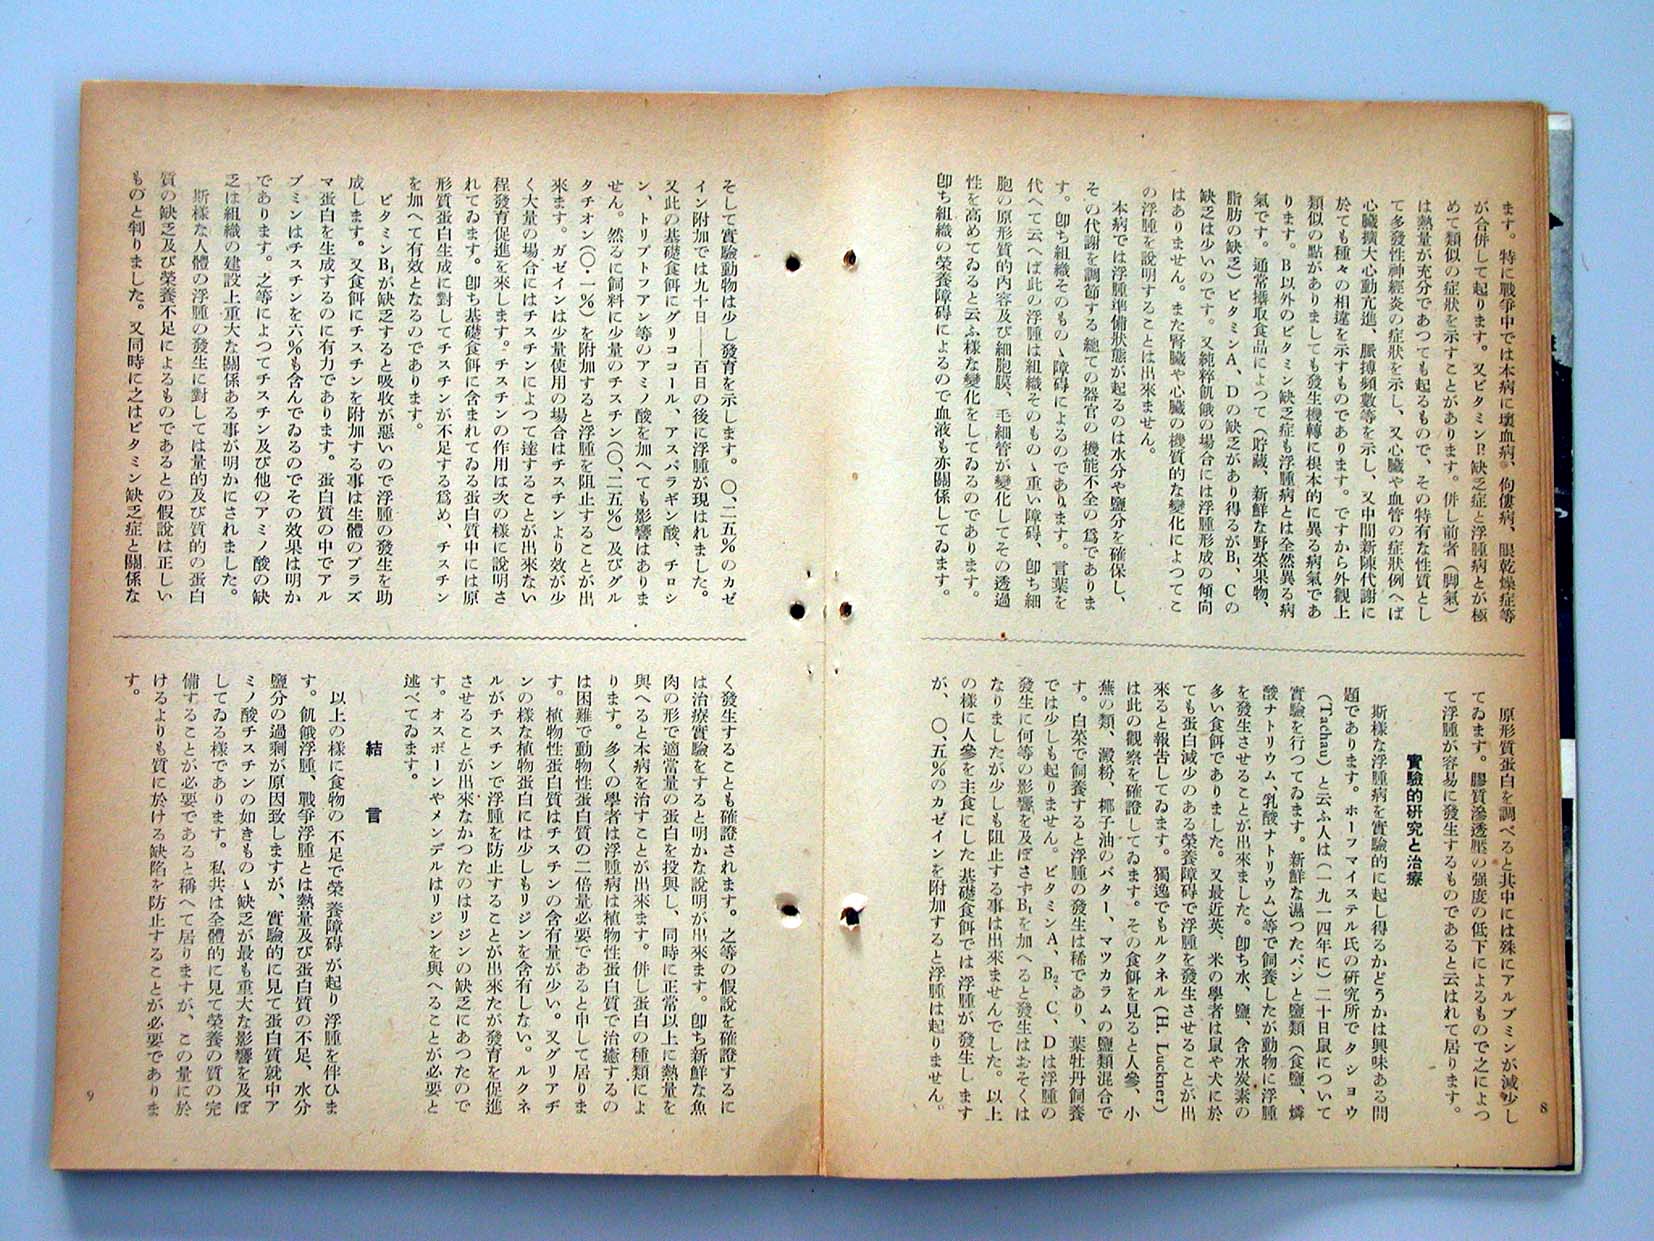 ます。特に戰爭中では本病に壞血病、佝僂病、眼乾燥症等
が合併して起ります。又ビタミンB缺乏症と浮腫病とが極
めて類似の症狀を示すことがあります。併し前者（脚氣）
は熱量が充分であつても起るもので、その特有な性質とし
て多發性神經炎の症狀を示し、又心臟や血管の症狀例へば
心臟擴大心動亢進、脈搏頻數等を示し、又中間新陳代謝に
於ても種々の相違を示すものであります。ですから外觀上
類似の點がありましても發生機轉に根本的に異る病氣であ
ります。B以外のビタミン缺乏症も浮腫病とは全然異る病
氣です。通常攝取食品によつて（貯藏、新鮮な野菜果物、
脂肪の缺乏）ビタミンA、Dの缺乏があり得るがB₁、Cの
缺乏は少いのです。又純粹飢餓の場合には浮腫形成の傾向
はありません。また腎臟や心臟の機質的な變化によつてこ
の浮腫を說明することは出來ません。
本病では浮腫準備狀態が起るのは水分や鹽分を確保し、
その代謝を調節する總ての器官の機能不全の爲でありま
す。卽ち組織そのものゝ障碍によるのであります。言葉を
代へて云へば此の浮腫は組織そのものゝ重い障碍、卽ち細
胞の原形質的內容及び細胞膜、毛細管が變化してその透過
性を高めてゐると云ふ樣な變化をしてゐるのであります。
卽ち組織の榮養障碍によるので血液も亦關係してゐます。
原形質蛋白を調べると其中には殊にアルブミンが減少し
てゐます。膠質滲透壓の强度の低下によるもので之によつ
て浮腫が容易に發生するものであると云はれて居ります。
實驗的研究と治療
斯樣な浮腫病を實驗的に起し得るかどうかは興味ある問
題であります。ホーフマイステル氏の研究所でタショウ
（Tachau）と云ふ人は（一九一四年に）二十日鼠について
實驗を行つてゐます。新鮮な濕つたパンと鹽類（食鹽、燐
酸ナトリウム、乳酸ナトリウム）等で飼養したが動物に浮腫
を發生させることが出來ました。卽ち水、鹽、含水炭素の
多い食餌でありました。又最近英、米の學者は鼠や犬に於
ても蛋白減少のある榮養障碍で浮腫を發生させることが出
來ると報告してゐます。獨逸でもルクネル（H. Luckner）
は此の觀察を確證してゐます。その食餌を見ると人參、小
蕪の類、澱粉、椰子油のバター、マツカラムの鹽類混合で
す。白菜で飼養すると浮腫の發生は稀であり、葉牡丹飼養
では少しも起りません。ビタミンA、B₂、C、Dは浮腫の
發生に何等の影響を及ぼさずB₁を加へると發生はおそくは
なりましたが少しも阻止する事は出來ませんでした。以上
の樣に人參を主食にした基礎食餌では浮腫が發生します
が、〇、五％のカゼインを附加すると浮腫は起りません。
8
そして實驗動物は少し發育を示します。〇、二五％のカゼ
イン附加では九十日――百日の後に浮腫が現はれました。
又此の基礎食餌にグリココール、アスパラギン酸、チロシ
ン、トリプトフアン等のアミノ酸を加へても影響はありま
せん。然るに飼料に少量のチスチン（〇、二五％）及びグル
タチオン（〇・一％）を附加すると浮腫を阻止することが出
來ます。ガゼインは少量使用の場合はチスチンより效が少
く大量の場合にはチスチンによつて達することが出來ない
程發育促進を來します。チスチンの作用は次の樣に說明さ
れてゐます。卽ち基礎食餌に含まれてゐる蛋白質中には原
形質蛋白生成に對してチスチンが不足する爲め、チスチン
を加へて有效となるのであります。
ビタミンB₁が缺乏すると吸收が惡いので浮腫の發生を助
成します。又食餌にチスチンを附加する事は生體のプラズ
マ蛋白を生成するのに有力であります。蛋白質の中でアル
ブミンはチスチンを六％も含んでゐるのでその效果は明か
であります。之等によつてチスチン及び他のアミノ酸の缺
乏は組織の建設上重大な關係ある事が明かにされました。
斯樣な人體の浮腫の發生に對しては量的及び質的の蛋白
質の缺乏及び榮養不足によるものであるとの假說は正しい
ものと判りました。又同時に之はビタミン缺乏症と關係な
く發生することも確證されます。之等の假說を確證するに
は治療實驗をすると明かな說明が出來ます。卽ち新鮮な魚
肉の形で適當量の蛋白を投與し、同時に正常以上に熱量を
與へると本病を治すことが出來ます。併し蛋白の種類によ
ります。多くの學者は浮腫病は植物性蛋白質で治癒するの
は困難で動物性蛋白質の二倍量必要であると申して居りま
す。植物性蛋白質はチスチンの含有量が少い。又グリアヂ
ンの樣な植物蛋白には少しもリジンを含有しない。ルクネ
ルがチスチンで浮腫を防止することが出來たが發育を促進
させることが出來なかつたのはリジンの缺乏にあつたので
す。オスボーンやメンデルはリジンを與へることが必要と
述べてゐます。
結言
以上の樣に食物の不足で榮養障碍が起り浮腫を伴ひま
す。飢餓浮腫、戰爭浮腫とは熱量及び蛋白質の不足、水分
鹽分の過剩が原因致しますが、實驗的に見て蛋白質就中ア
ミノ酸チスチンの如きものゝ缺乏が最も重大な影響を及ぼ
してゐる樣であります。私共は全體的に見て榮養の質の完
備することが必要であると稱へて居りますが、この量に於
けるよりも質に於ける缺陷を防止することが必要でありま
す。
9